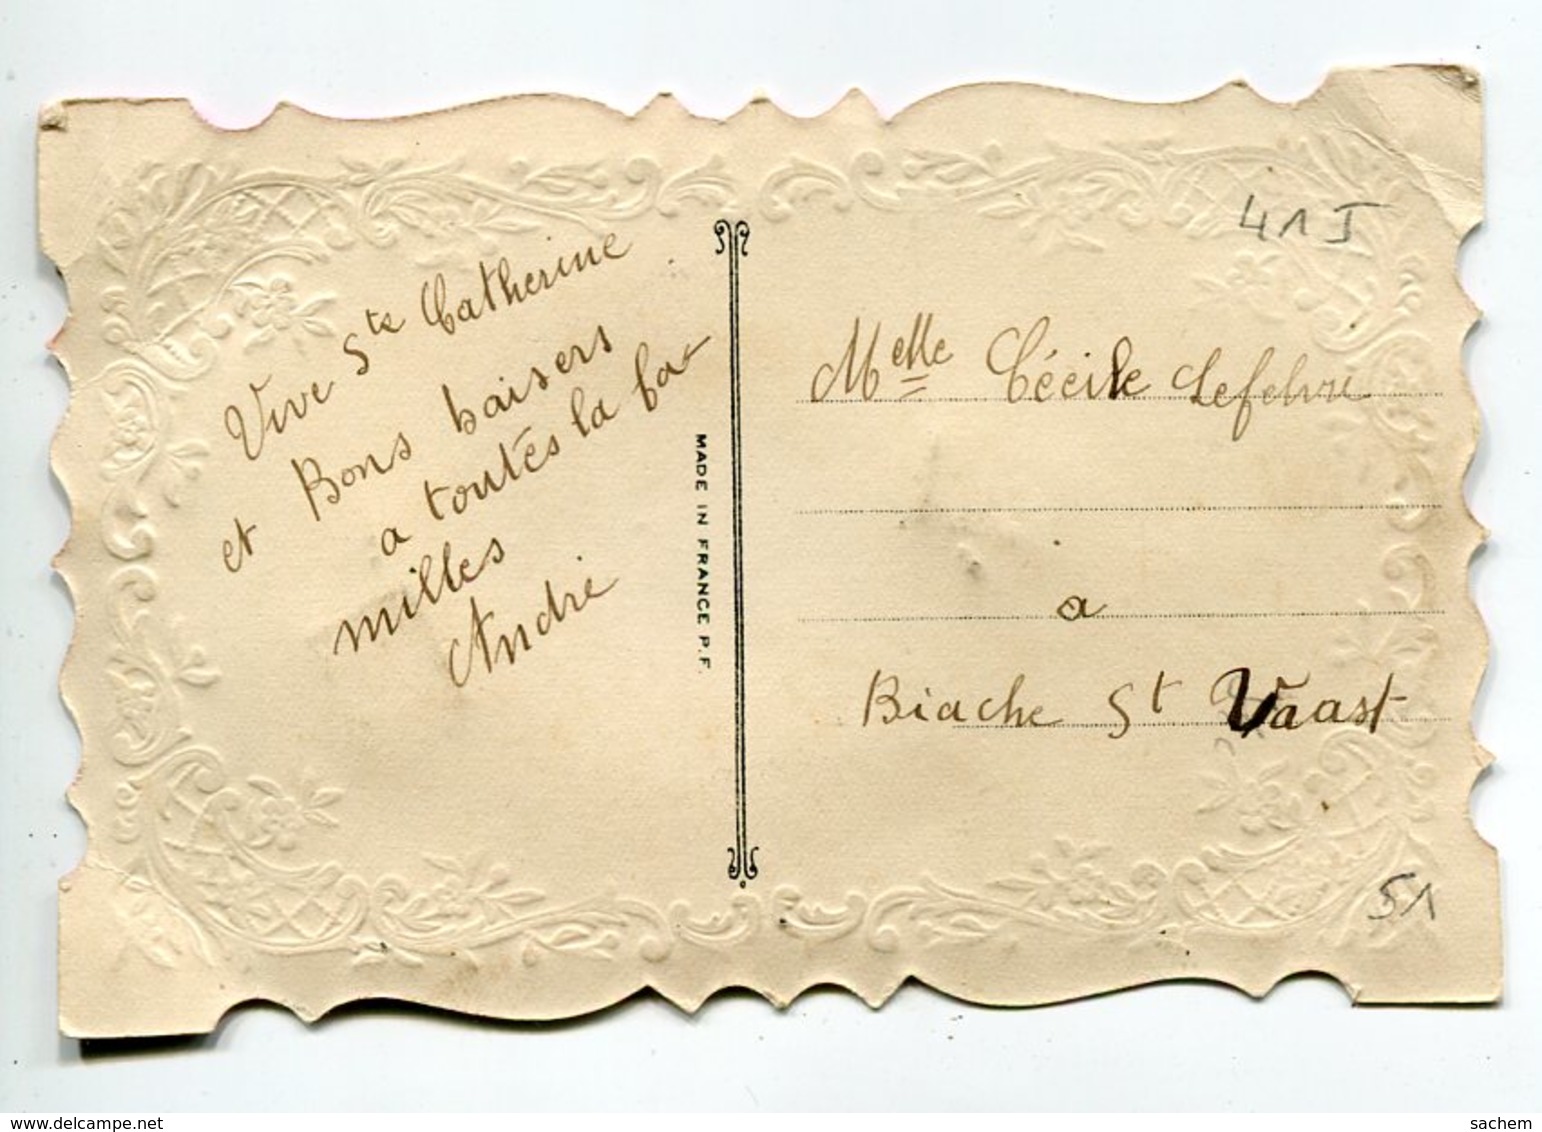 Vive Ste Catherine
et Bons baisers
a toutés la fa-
milles
André
MADE IN FRANCE P.F.
41 I
Melle Cécile Lefebvre
a
Biache St Vaast
51
delcampe.net
sachem